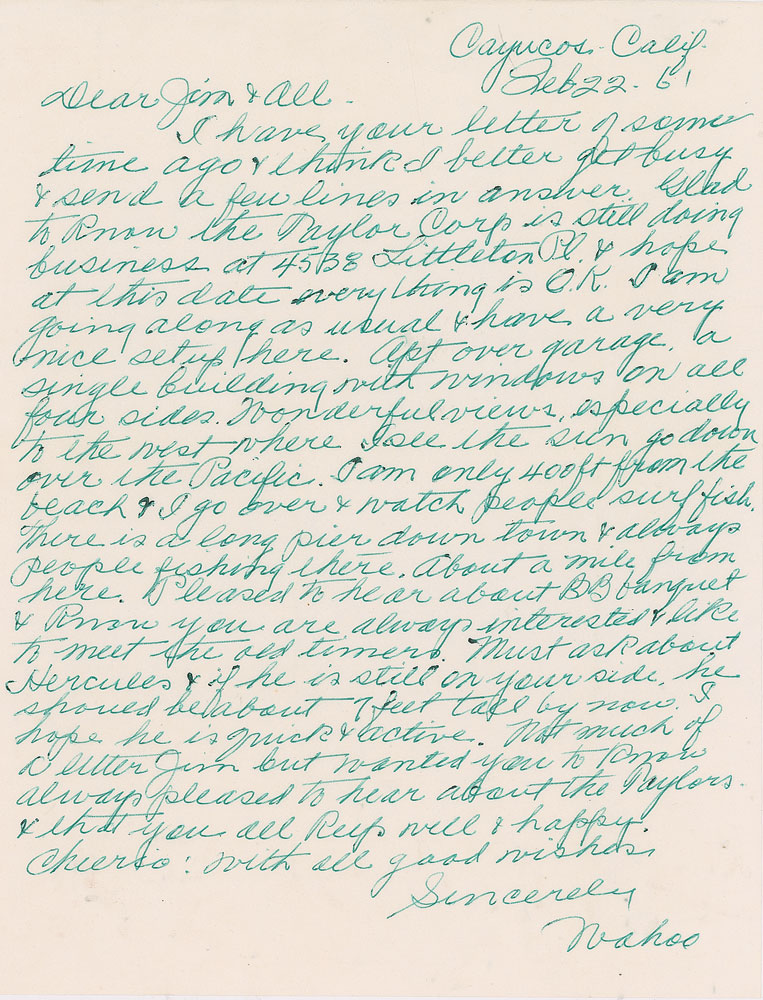 Cayucos - Calif.
Feb 22 - 61
Dear Jim & all -
I have your letter of some
time ago & think I better get busy
& send a few lines in answer. Glad
to know the Taylor Corp is still doing
business at 4538 Littleton Pl. & hope
at this date everything is O.K. I am
going along as usual & have a very
nice setup here. Apt over garage, a
single building with windows on all
four sides. Wonderful views, especially
to the west where I see the sun go down
over the Pacific. I am only 400 ft from the
beach & I go over & watch people surf fish.
There is a long pier down town & always
people fishing there. About a mile from
here. Pleased to hear about BB banquet
& know you are always interested & like
to meet the old timers. Must ask about
Hercules & if he is still on your side, he
should be about 7 feet tall by now. I
hope he is quick & active. Not much of
a letter Jim but wanted you to know
always pleased to hear about the Taylors.
& that you all keep well & happy.
Cheerio! With all good wishes
Sincerely
Wahoo